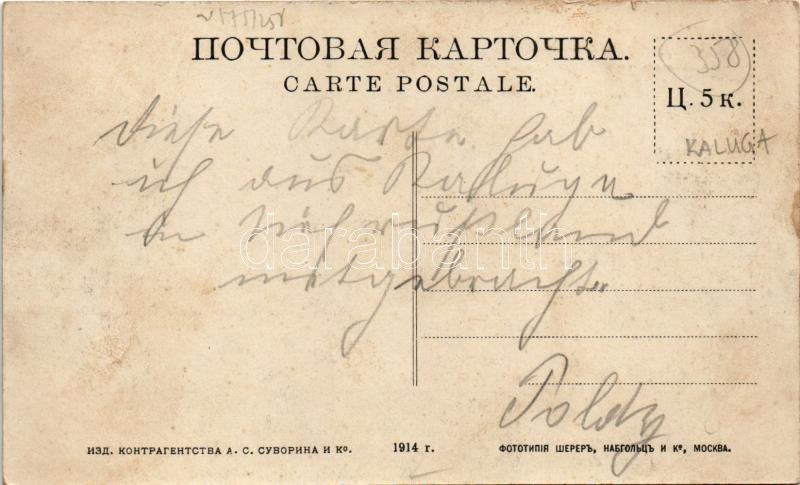 358
ПОЧТОВАЯ КАРТОЧКА.
CARTE POSTALE.
Ц. 5 к.
KALUGA
Diese Karte hab
ich aus Kaluga
in Südrußland
mitgebracht.
Poldy
darabanth
ИЗД. КОНТРАГЕНТСТВА А. С. СУВОРИНА И Ко. 1914 г. ФОТОТИПІЯ ШЕРЕРЪ, НАБГОЛЬЦЪ И Ко, МОСКВА.